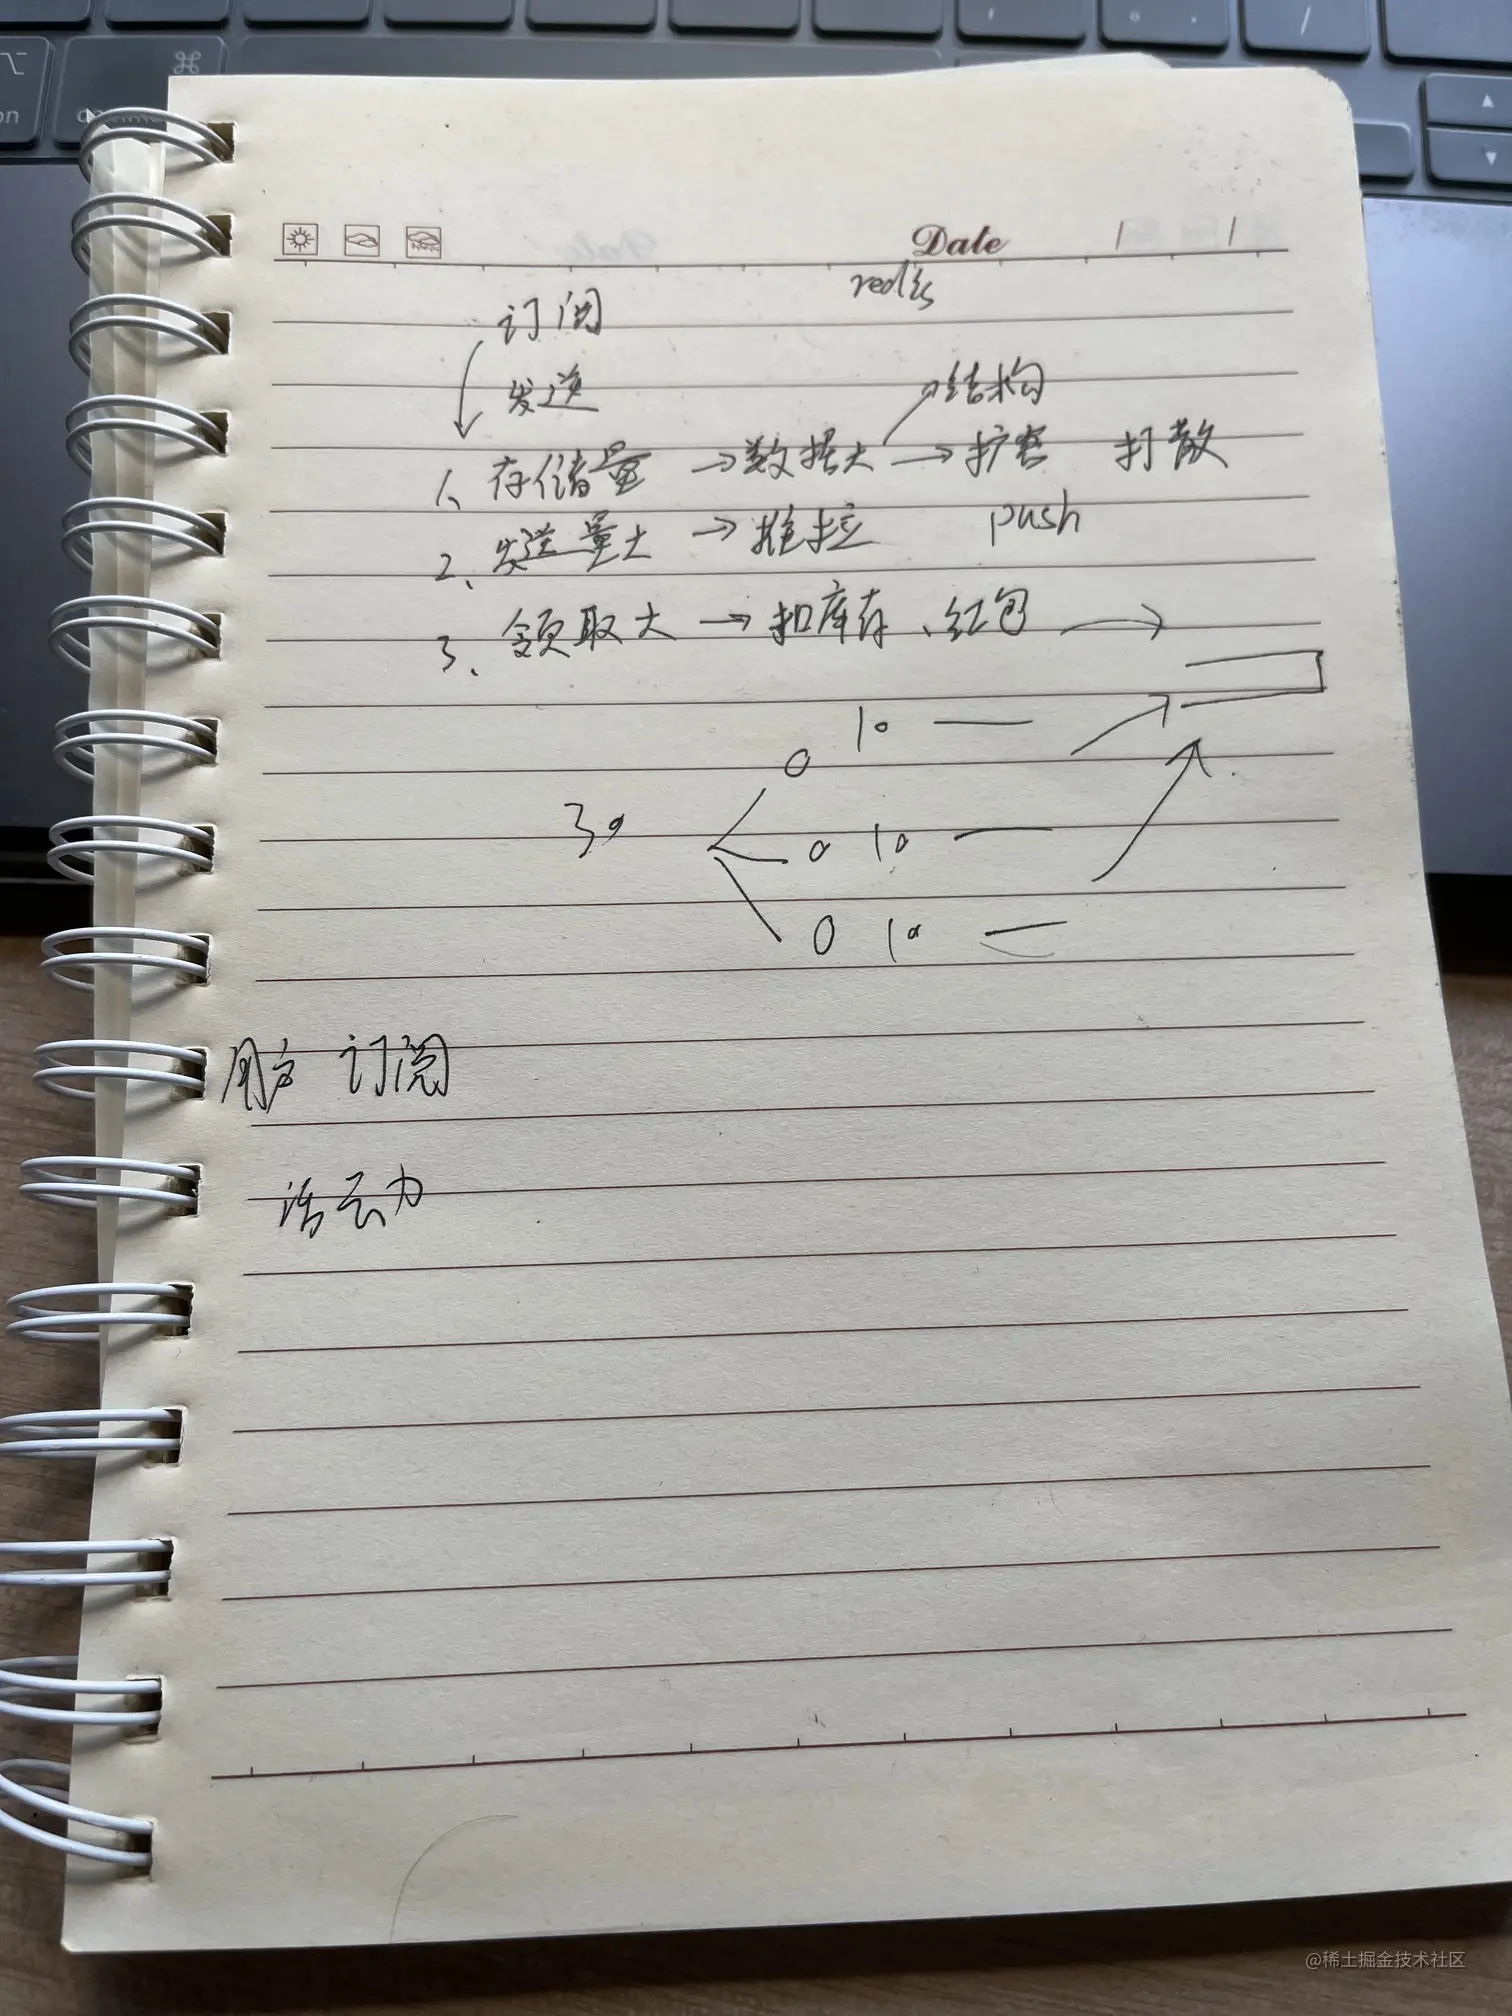 Date / /
redis
订阅
发送
结构
1、存储量 →数据大 →扩容 打散
2、发送量大 →推拉 push
3、领取大 →扣库存、红包 →
0 10 —
30
0 10 —
0 10 —
用户 订阅
活动
@稀土掘金技术社区